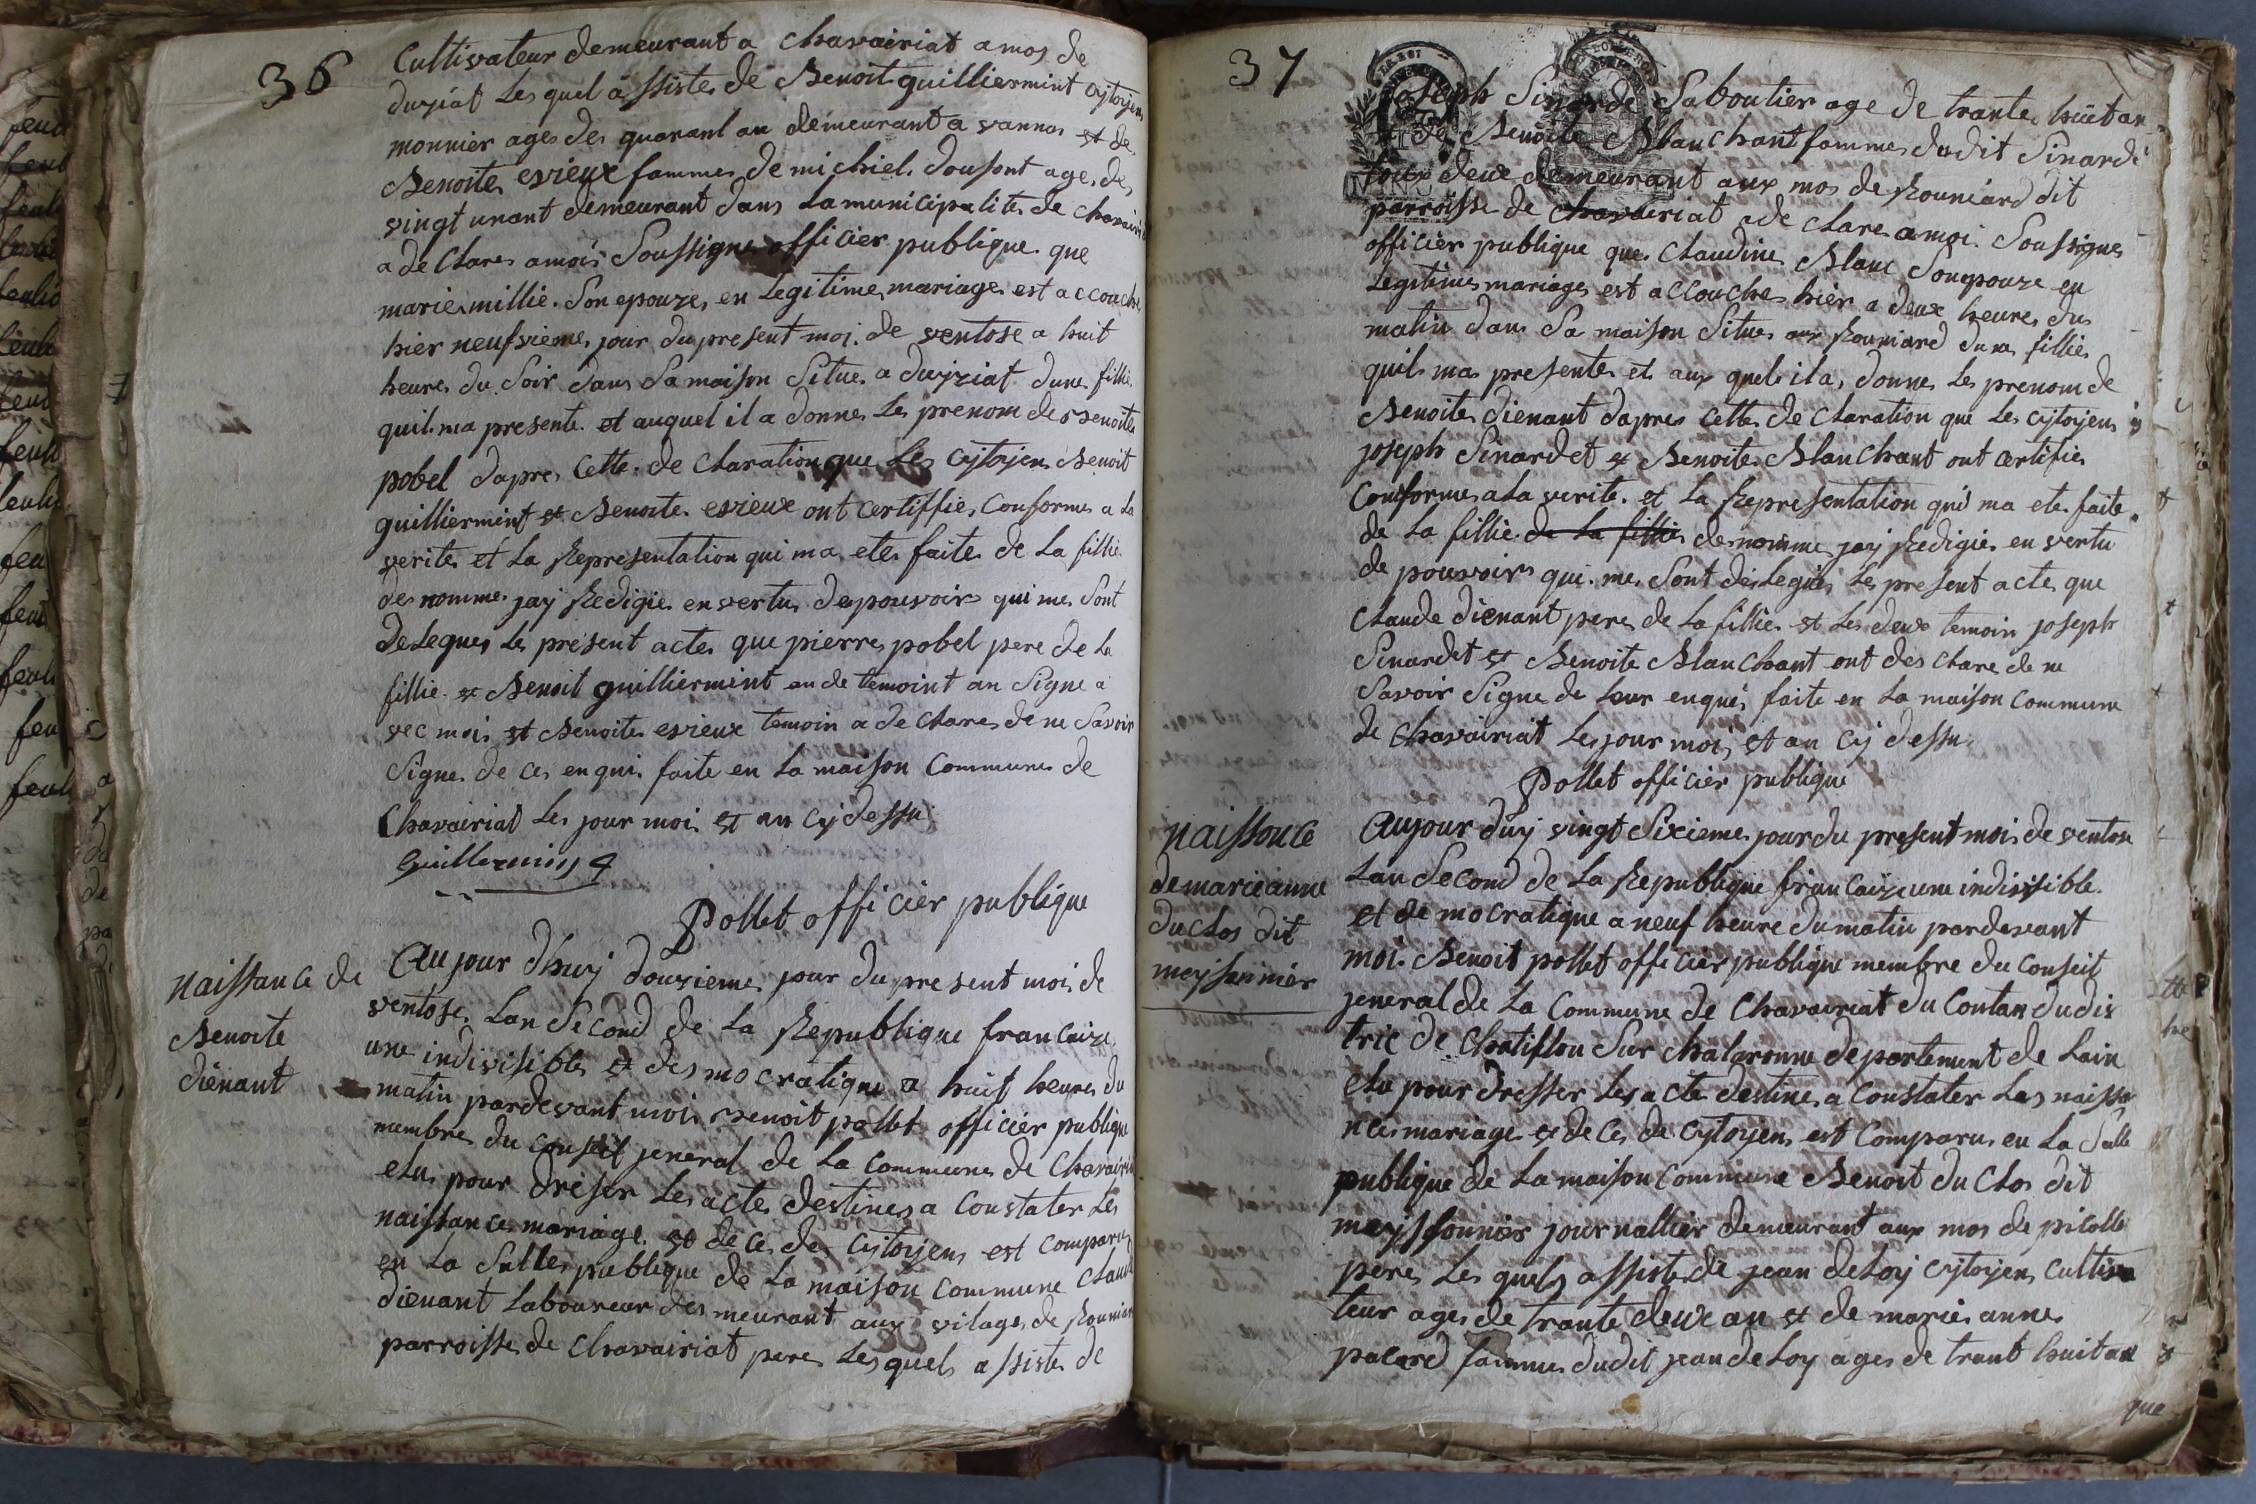 36
Cultivateur demeurant a chavairiat a mas de
duysiat Les quel assistes de Benoit guilliermint cytoyen
monnier ages des quarant an demeurant a vannas et de
Benoites esvieux fammes de michiel dousont ages des
vingt unant demeurant dans La municipalites de chavairiat
a de Clares a mois Soussigne officier publique que
maries millie Son epouzes en Legitime mariages est accouches
hier neufviemes jour du present moi de ventose a huit
heures du Soir dans Sa maison Situes a duyziat dune fillie
quil ma presente et auquel il a donnes Les prenom de Benoites
pobel dapres Cette de Claration que Les cytoyen Benoit
guilliermint et Benoite esvieux ont certiffies Conformes a La
verites et La Representation qui ma etes faites de La fillie
des nommes jay Redigies en vertus des pouvoirs qui mes Sont
Delegues Les present actes que pierres pobel pere de La
fillie et Benoit guilliermint un de temoint an Signe a
vec mois et Benoites esvieux temoin a de Clares de ne Savoir
Signes de ces en quis faite en La maison Communes de
Chavairiat Les jour moi et an cy dessu
Guillermin
Pollet officier publique
naissance de
Benoite
diénant
Aujour dhuy douziemes jour du present moi de
ventoses Lan Second de La Republique francaize
une indivisibles et des mocratique a huit heures du
matin pardevant moi Benoit pollet officier publique
membres du conseil jeneral de La Communes de Chavairiat
elus pour dreser Les actes destines a Constater Les
naissances mariage et deces des Cytoyens est Comparus
en La Salles publique de La maison Commune Claude
dienant Laboureur des meurant aux vilages de Rouniard
parroisses de Chavairiat peres Les quels assistes de
37
joseph Sinarde Saboutier age de trante huit an
et de Benoite Blanchant fammes dudit Sinarde
tous deux demeurant aux mas de Rouniard dit
parroisse de chavairiat a de Clares a moi Soussignes
officier publique que Claudine Blanc Son epouze en
Legitimes mariages est accouches hier a deux heures du
matin dans Sa maison Situes aux Rouniard dunes fillies
quils mas presentes et aux quels il a donnes Les prenom de
Benoites dienant dapres Cettes de Claration que Les cytoyens
joseph Sinardet et Benoites Blanchant ont certifies
Conformes a La verite et La Representation qui ma etes faite
de La fillie de La fillie denomme jay Redigies en vertu
de pouvoirs qui mes Sont delegues Le present actes que
Claude dienant peres de La fillie et Les deux temoin joseph
Sinardet et Benoite Blanchant ont des Clare de ne
Savoir Signe de Leur enquis faite en La maison Commune
de Chavairiat Les jour moi et an cy dessu
Pollet officier publique
naissance
de marie anne
du Clos dit
meysonnier
Aujour duy vingt Sixiemes jour du present moi de ventose
Lan Second de La Republique francaize une indivisible
et de mocratique a neuf heure du matin pardevant
moi Benoit pollet officier publique membre du Conseil
jeneral de La Commune de Chavairiat du Contan du dis
tric de Chatillon Sur chalaronne departement de Lain
elu pour dresser Les acte destines a Constater Les naissa
nces mariage et deces de Cytoyens est Comparus en La Salle
publique de La maison Commune Benoit du Clos dit
meyssonnier journallier demeurant aux mas de picolle
peres Les quels assiste de jean deLoy Cytoyens Cultiva
teur ages de trante deux an et de maries annes
pacard fammes dudit jean de Loy ages de trant huit an
que